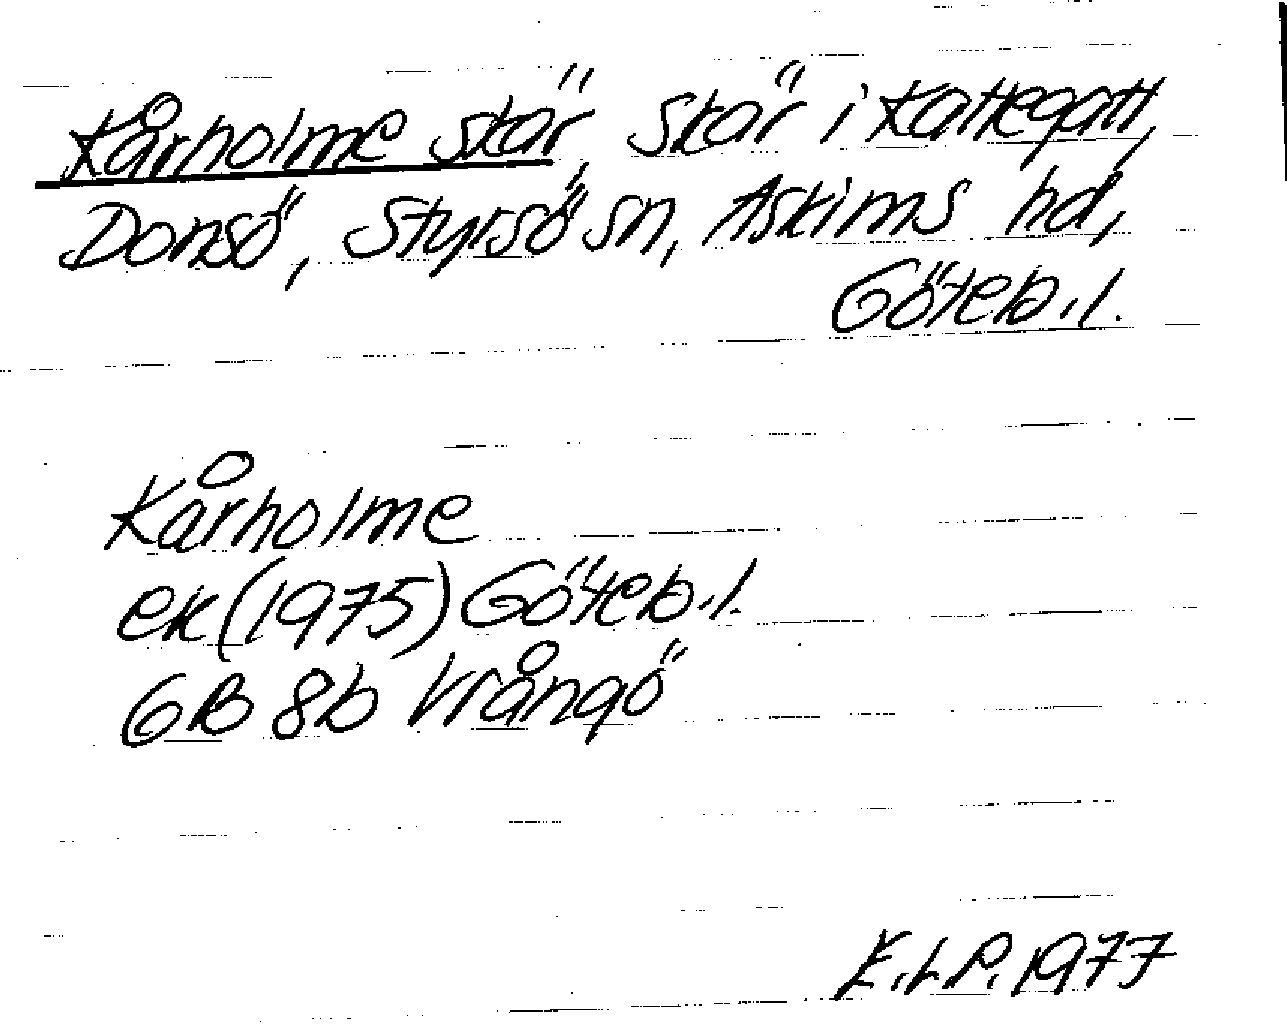 Kårholme skär, skär i Kattegatt,
Donsö, Styrsö sn, Askims hd,
Göteb.l.
Kårholme
ek (1975) Göteb.l.
6B 8b Vrångö
E.L.P. 1977